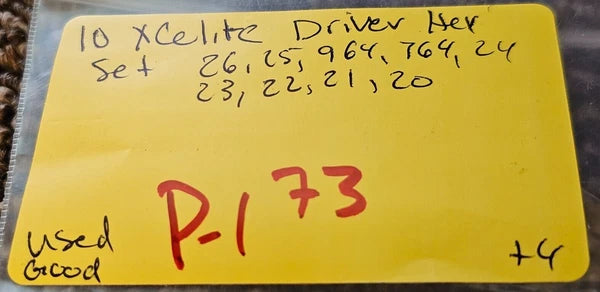 10 Xcelite Driver Hex
Set 26, 25, 964, 764, 24
23, 22, 21, 20
P-173
used
Good
+4